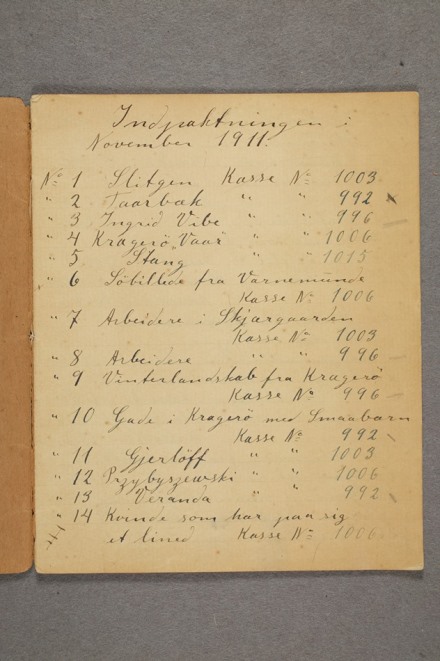 Indpaktningen i
November 1911.
No 1 Slitgen Kasse No 1003
" 2 Taarbæk " " 992 x
" 3 Ingrid Vibe " " 996
" 4 Kragerö Vaar " " 1006
" 5 Stang " " 1015
" 6 Söbillede fra Varnemünde
Kasse No 1006
" 7 Arbeidere i Skjærgaarden
Kasse No 1003
" 8 Arbeidere " " 996
" 9 Vinterlandskab fra Kragerö
Kasse No 996
" 10 Gade i Kragerö med Smaabarn
Kasse No 992
" 11 Gjerlöff " " 1003
" 12 Przybyszewski " " 1006
" 13 Veranda " " 992
" 14 Kvinde som har paa sig
et lined Kasse No 1006